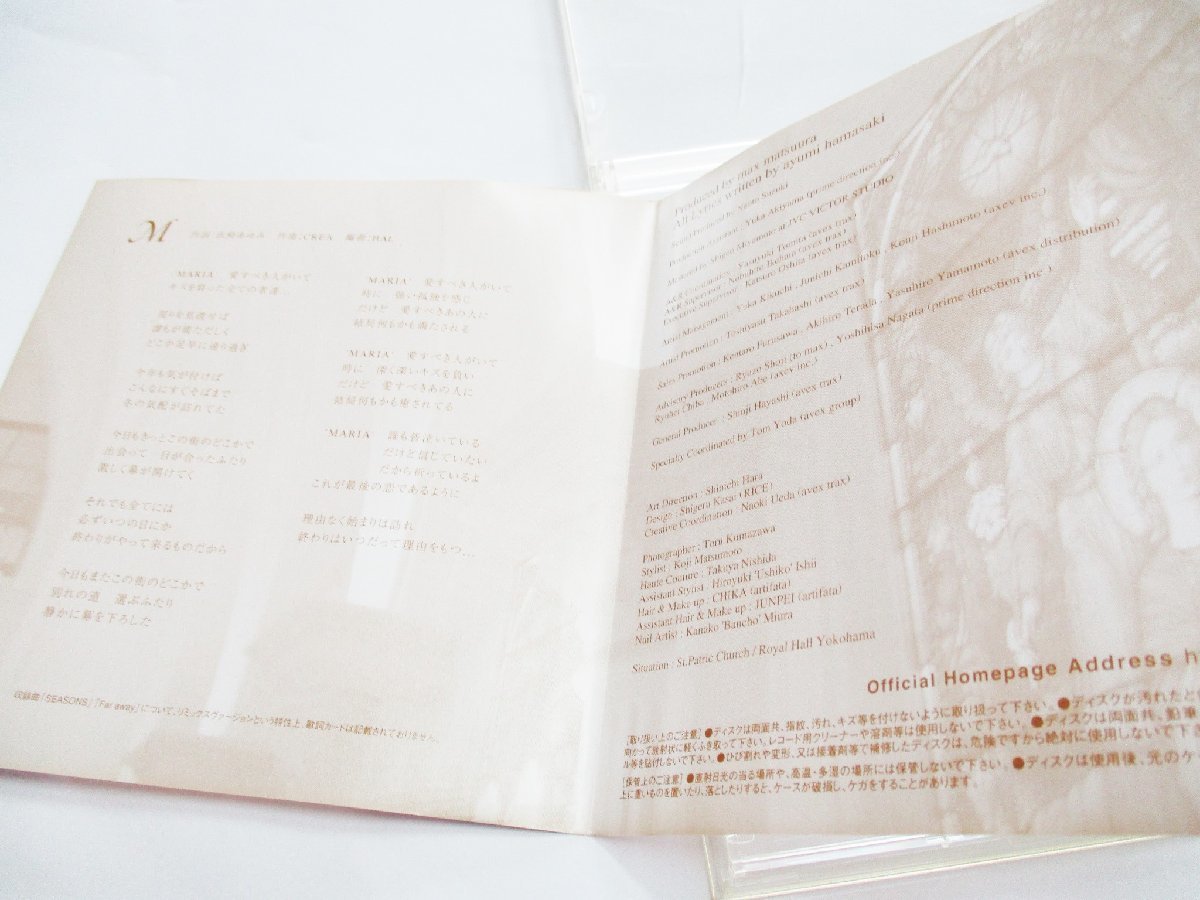 M 作詞:浜崎あゆみ 作曲:CREA 編曲:HAL
'MARIA' 愛すべき人がいて
キズを負った全ての者達…
周りを見渡せば
誰もが慌ただしく
どこか足早に通り過ぎ
今年も気が付けば
こんなにすぐそばまで
冬の気配が訪れてた
今日もきっとこの街のどこかで
出会って 目が合ったふたり
激しく幕が開けてく
それでも全てには
必ずいつの日にか
終わりがやって来るものだから
今日もまたこの街のどこかで
別れの道 選ぶふたり
静かに幕を下ろした
'MARIA' 愛すべき人がいて
時に 強い孤独を感じ
だけど 愛すべきあの人に
結局何もかも満たされる
'MARIA' 愛すべき人がいて
時に 深い深いキズを負い
だけど 愛すべきあの人に
結局何もかも癒されてる
'MARIA' 誰も皆泣いている
だけど信じていたい
だから祈っているよ
これが最後の恋であるように
理由なく始まりは訪れ
終わりはいつだって理由をもつ…
収録曲「SEASONS」「Far away」について、リミックスヴァージョンという特性上、歌詞カードは記載されておりません。
Produced by max matsuura
All Lyrics written by ayumi hamasaki
Sound Produced by Naoto Suzuki
Production Assistant : Yuka Akiyama (prime direction inc.)
Mastered by Shigeo Miyamoto at JVC VICTOR STUDIO
A&R Coordination : Yasuyuki Tomita (avex trax)
A&R Supervisor : Nobuhite Ikegami (avex trax)
Executive Supervisor : Katsuro Oshita (avex trax)
Artist Management : Yuka Kikuchi , Junichi Kamitoku , Kenji Hashimoto (avex inc.)
Artist Promotion : Toshiyasu Takahashi (avex trax)
Sales Promotion : Kentaro Furusawa , Akihiro Terada , Yasuhiro Yamamoto (avex distribution)
Advisory Producers : Ryuzo Shoji (to max) , Yoshihisa Nagata (prime direction inc.)
Ryuhei Chiba , Motohiro Abe (avex inc.)
General Producer : Shinji Hayashi (avex trax)
Specialty Coordinated by Tom Yoda (avex group)
Art Direction : Shinichi Hara
Design : Shigeru Kasai (RICE)
Creative Coordination : Naoki Ueda (avex trax)
Photographer : Toru Kumazawa
Stylist : Koji Matsumoto
Haute Couture : Takaya Nishida
Assistant Stylist : Hiroyuki 'Ushiko' Ishii
Hair & Make up : CHIKA (artifata)
Assistant Hair & Make up : JUNPEI (artifata)
Nail Artist : Kanako 'Bancho' Miura
Situation : St.Patric Church / Royal Hall Yokohama
Official Homepage Address h
[取り扱い上のご注意] ●ディスクは両面共、指紋、汚れ、キズ等を付けないように取り扱って下さい。●ディスクが汚れたと
向かって放射状に軽くふき取って下さい。レコード用クリーナーや溶剤等は使用しないで下さい。●ディスクは両面共、鉛筆
ル等を貼付しないで下さい。●ひび割れや変形、又は接着剤等で補修したディスクは、危険ですから絶対に使用しないで下さ
[保管上のご注意] ●直射日光の当る場所や、高温・多湿の場所には保管しないで下さい。●ディスクは使用後、元のケ
上に重いものを置いたり、落としたりすると、ケースが破損し、ケガをすることがあります。